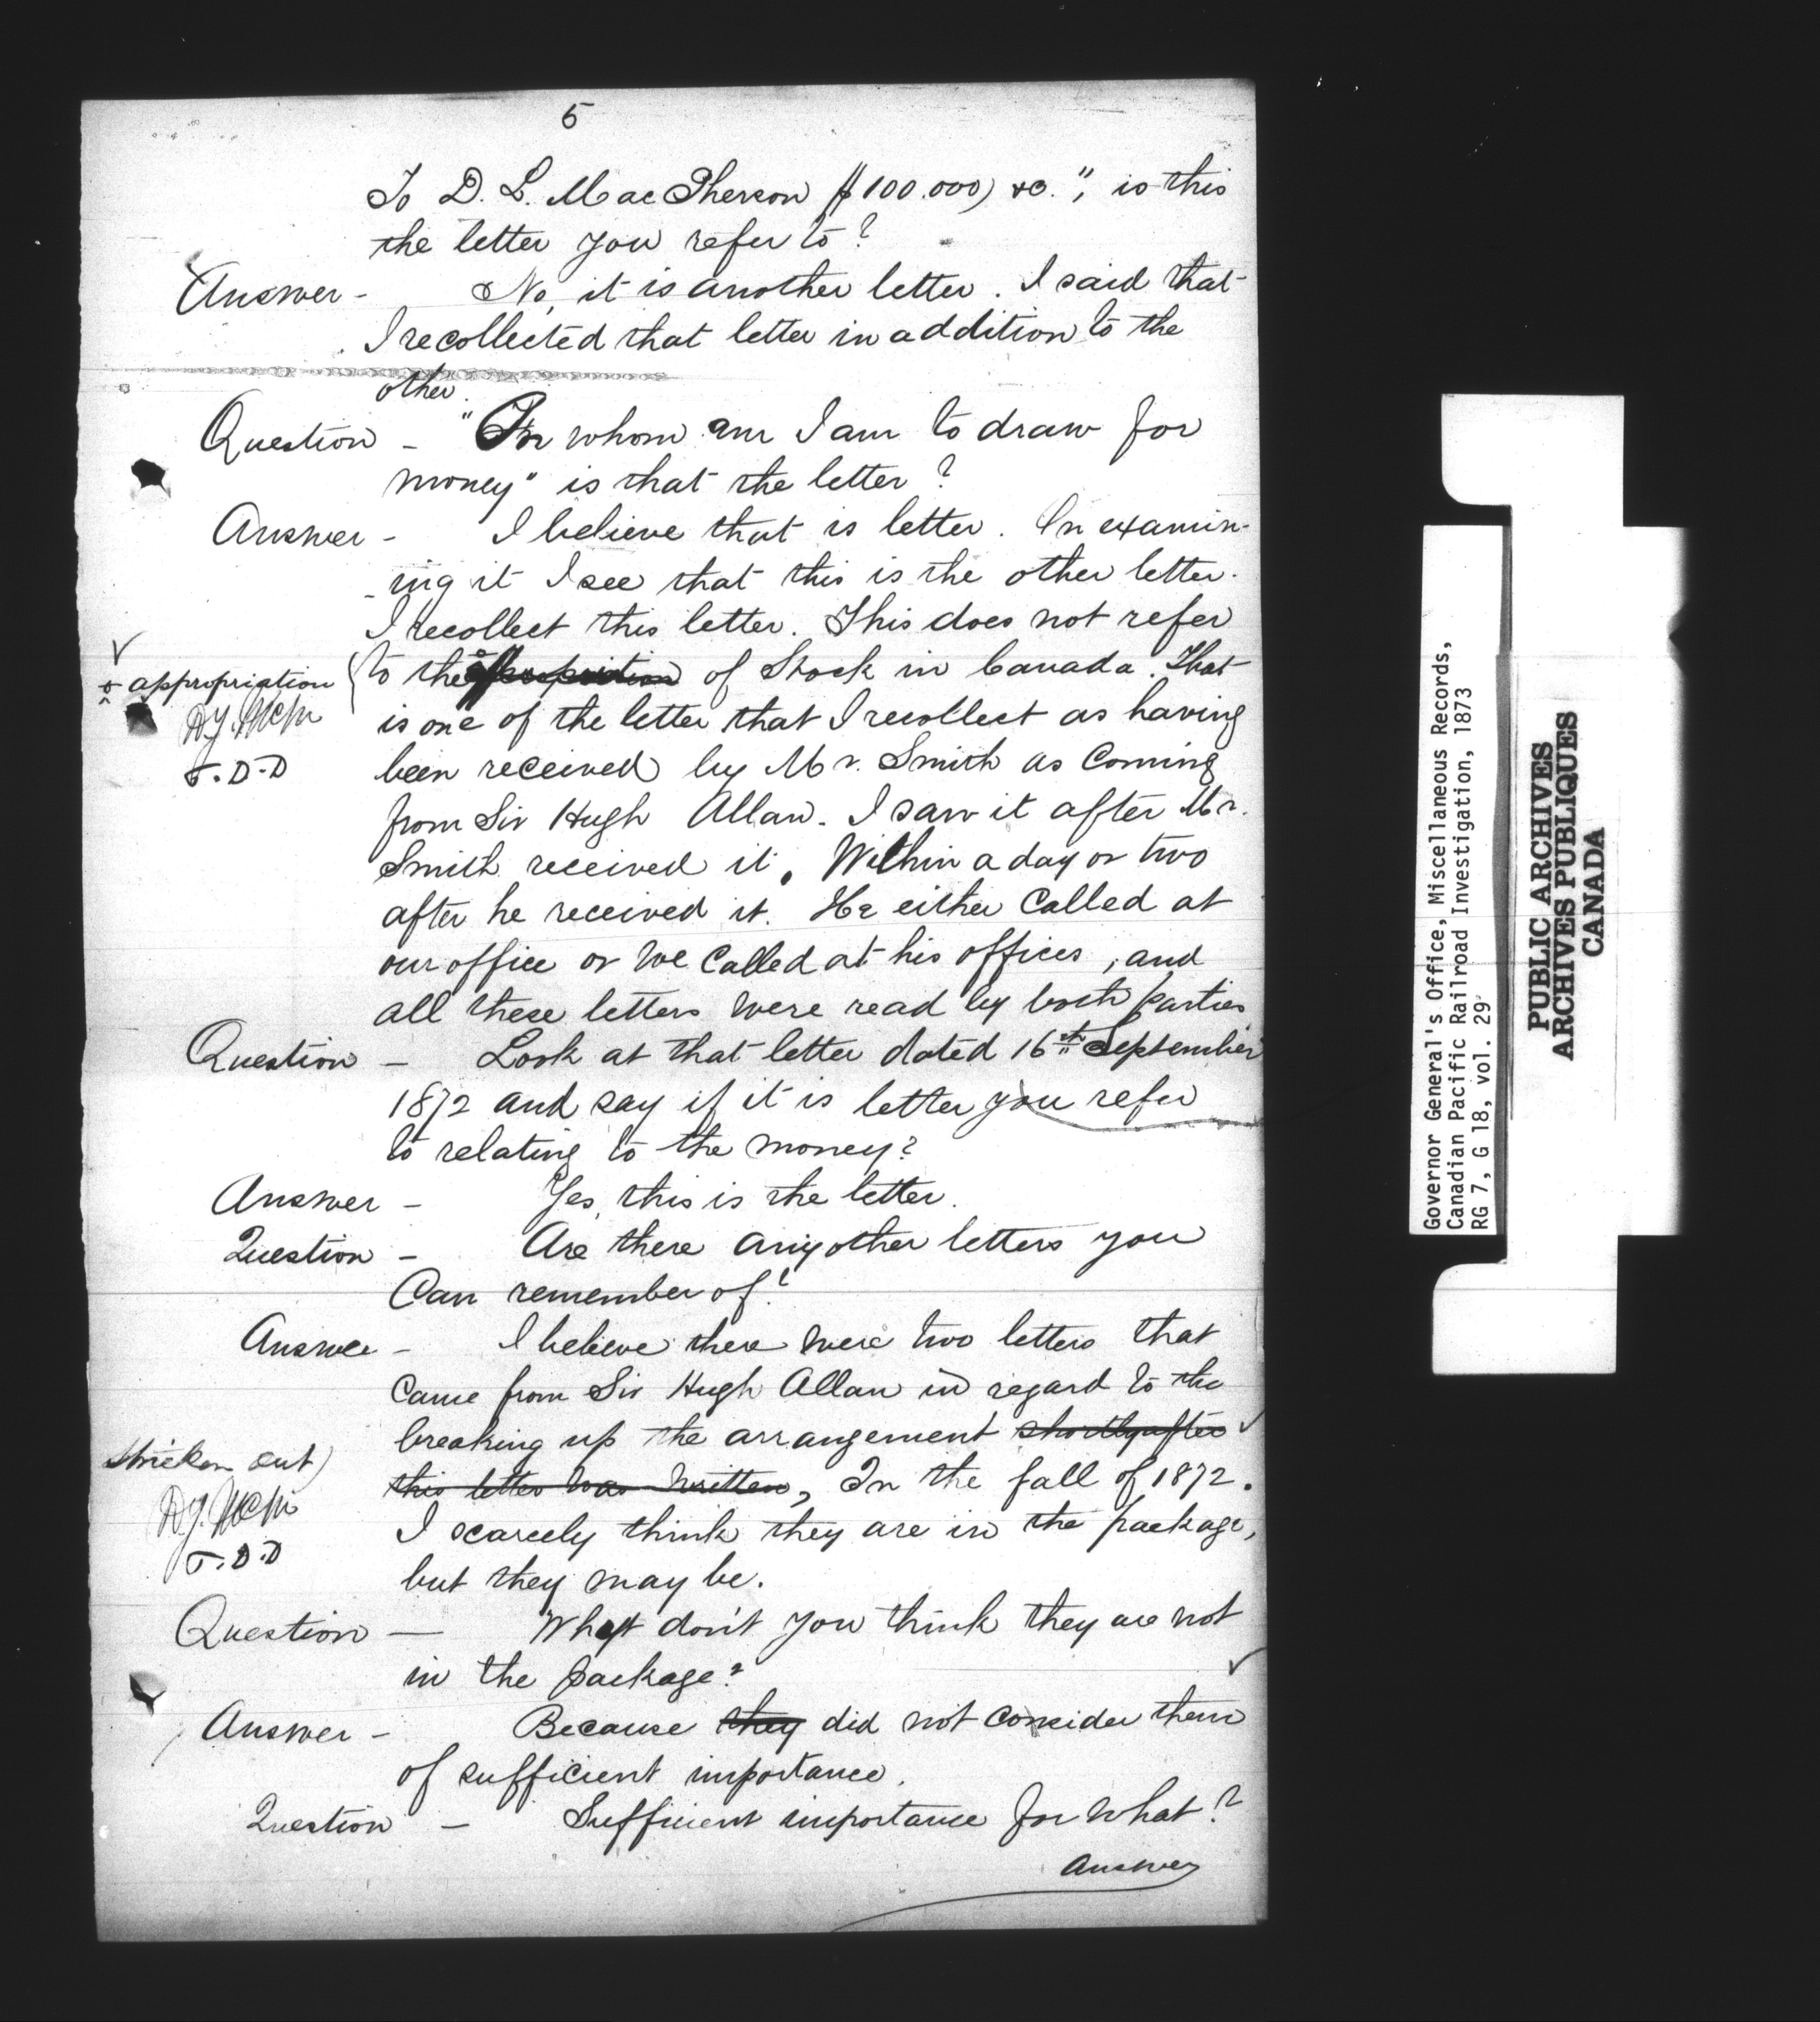 5
To D. L. MacPherson $100.000) &c.", is this
the letter you refer to?
Answer - No, it is another letter. I said that
I recollected that letter in addition to the
other.
Question - "On whom am I am to draw for
money" is that the letter?
Answer - I believe that is letter. On examin-
-ing it I see that this is the other letter.
I recollect this letter. This does not refer
to the of Stock in Canada. That
+ appropriation
is one of the letter that I recollect as having
been received by Mr. Smith as Coming
T.D.D
from Sir Hugh Allan. I saw it after Mr.
Smith received it. Within a day or two
after he received it. He either Called at
our office or we Called at his offices, and
all these letters were read by both parties
Question - Look at that letter dated 16th September
1872 and say if it is letter you refer
to relating to the money?
Answer - Yes, this is the letter.
Question - Are there any other letters you
Can remember of?
Answer - I believe there were two letters that
Came from Sir Hugh Allan in regard to the
breaking up the arrangement shortly after
stricken out)
this letter was written, In the fall of 1872.
I scarcely think they are in the package,
T.D.D
but they may be.
Question - Why don't you think they are not
in the package?
Answer - Because they did not consider them
of sufficient importance.
Question - Sufficient importance for what?
Answer
Governor General's Office, Miscellaneous Records,
Canadian Pacific Railroad Investigation, 1873
RG 7, G 18, vol. 29
PUBLIC ARCHIVES
ARCHIVES PUBLIQUES
CANADA